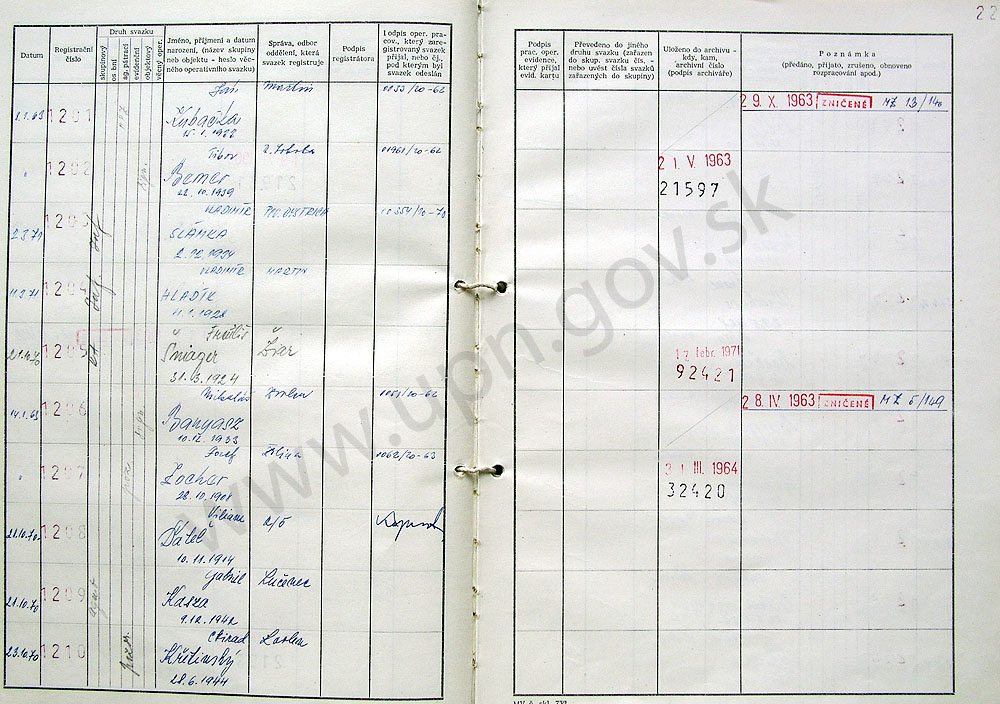 22
Datum
Registrační číslo
Druh svazku
skupinový
osobní
ag. pátrací
evidenční
objektový
věcný oper.
Jméno, příjmení a datum
narození, (název skupiny
neb objektu - heslo věc-
ného operativního svazku)
Správa, odbor
oddělení, která
svazek registruje
Podpis
registrátora
Podpis oper. pra-
cov., který zare-
gistrovaný svazek
přijal, nebo čj.,
pod kterým byl
svazek odeslán
Podpis
prac. oper.
evidence,
který přijal
evid. kartu
Převedeno do jiného
druhu svazku (zařazen
do skup. svazku čís. -
nebo uvést čísla svazků
zařazených do skupiny)
Uloženo do archivu -
kdy, kam,
archivní číslo
(podpis archiváře)
Poznámka
(předáno, přijato, zrušeno, obnoveno
rozpracování apod.)
Ján Martin 0133/20-62
1.1.63 1201 Kubačka
15.1.1922
29.X.1963 ZNIČENÉ MZ 13/140
Tibor 01961/20-62
" 1202 Bemer
22.10.1939
21.V.1963
21597
VLADIMÍR POV. BYSTRICA 10354/20-70
1203 SLÁMKA
2.12.1934
VLADIMÍR MARTIN
1204 HLADÍK
11.1.1928
1205 Šniager Žiar
31.3.1924
12 febr. 1971
92421
Mikuláš Zvolen 1051/20-62
14.1.63 1206 Banyasz
1933
28.IV.1963 ZNIČENÉ MZ 5/149
Jozef Žilina 1062/20-63
" 1207 Locher
28.10.1908
31.III.1964
32420
Viliam
21.10.70 1208
10.11.1914
Gabriel Lučenec
21.10.70 1209 Kasza
9.12.1942
Ctirad
23.10.70 1210 Křetinský
28.6.1944
www.upn.gov.sk